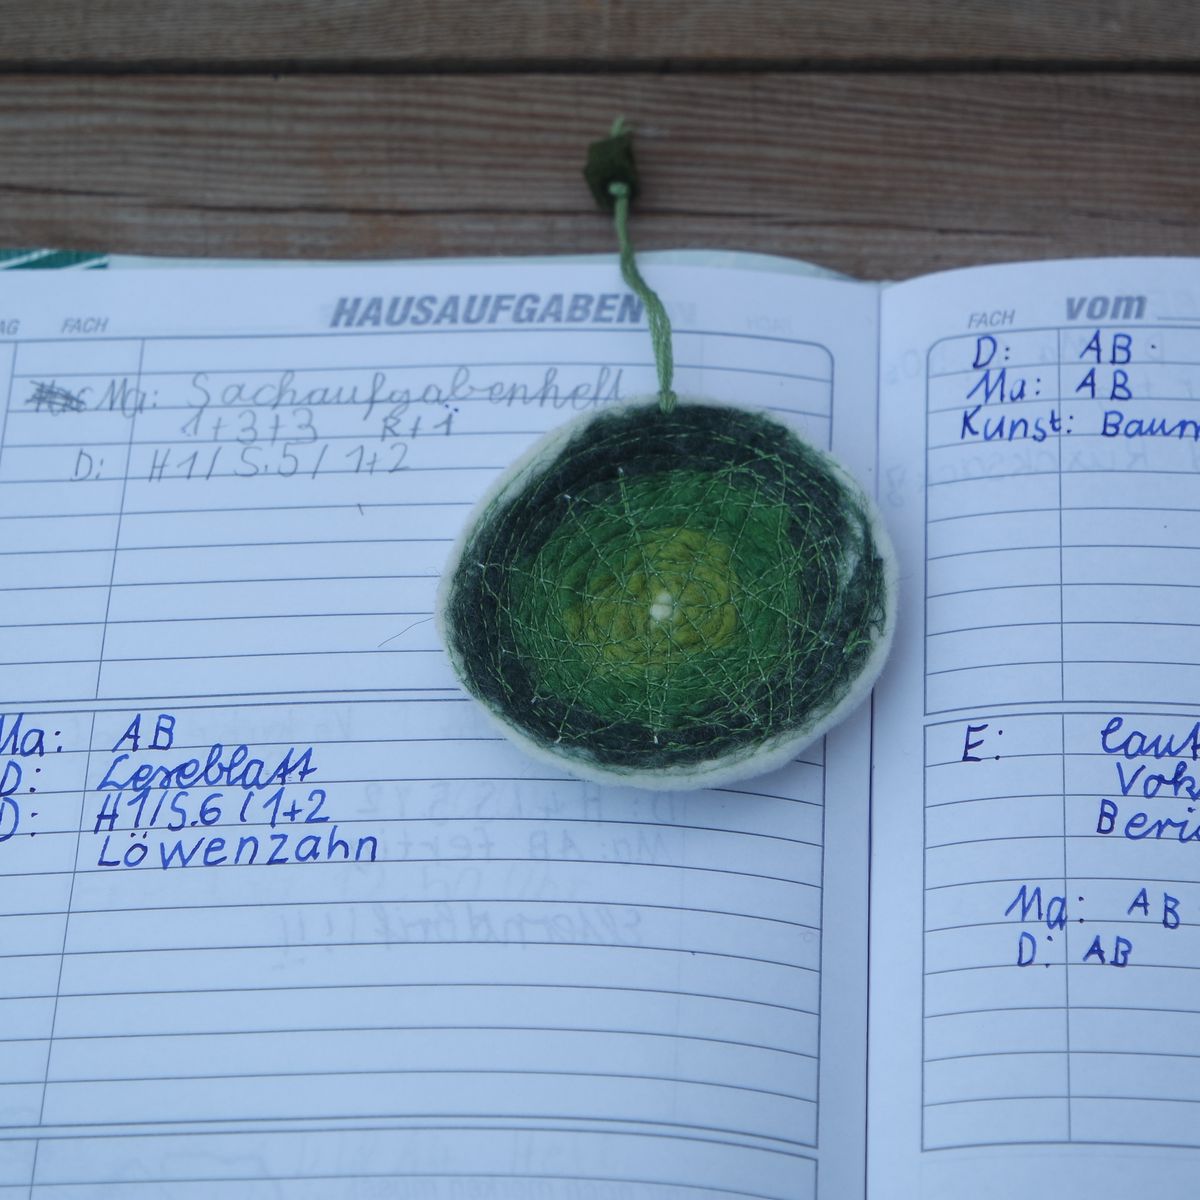 FACH
HAUSAUFGABEN
Ma: Sachaufgabenheft
1+3+3 R+Ü
D: H1/S.5/1+2
Ma: AB
D: Leseblatt
D: H1/S.6/1+2
Löwenzahn
FACH vom
D: AB
Ma: AB
Kunst: Baum
E: laut
Vok
Beri
Ma: AB
D: AB